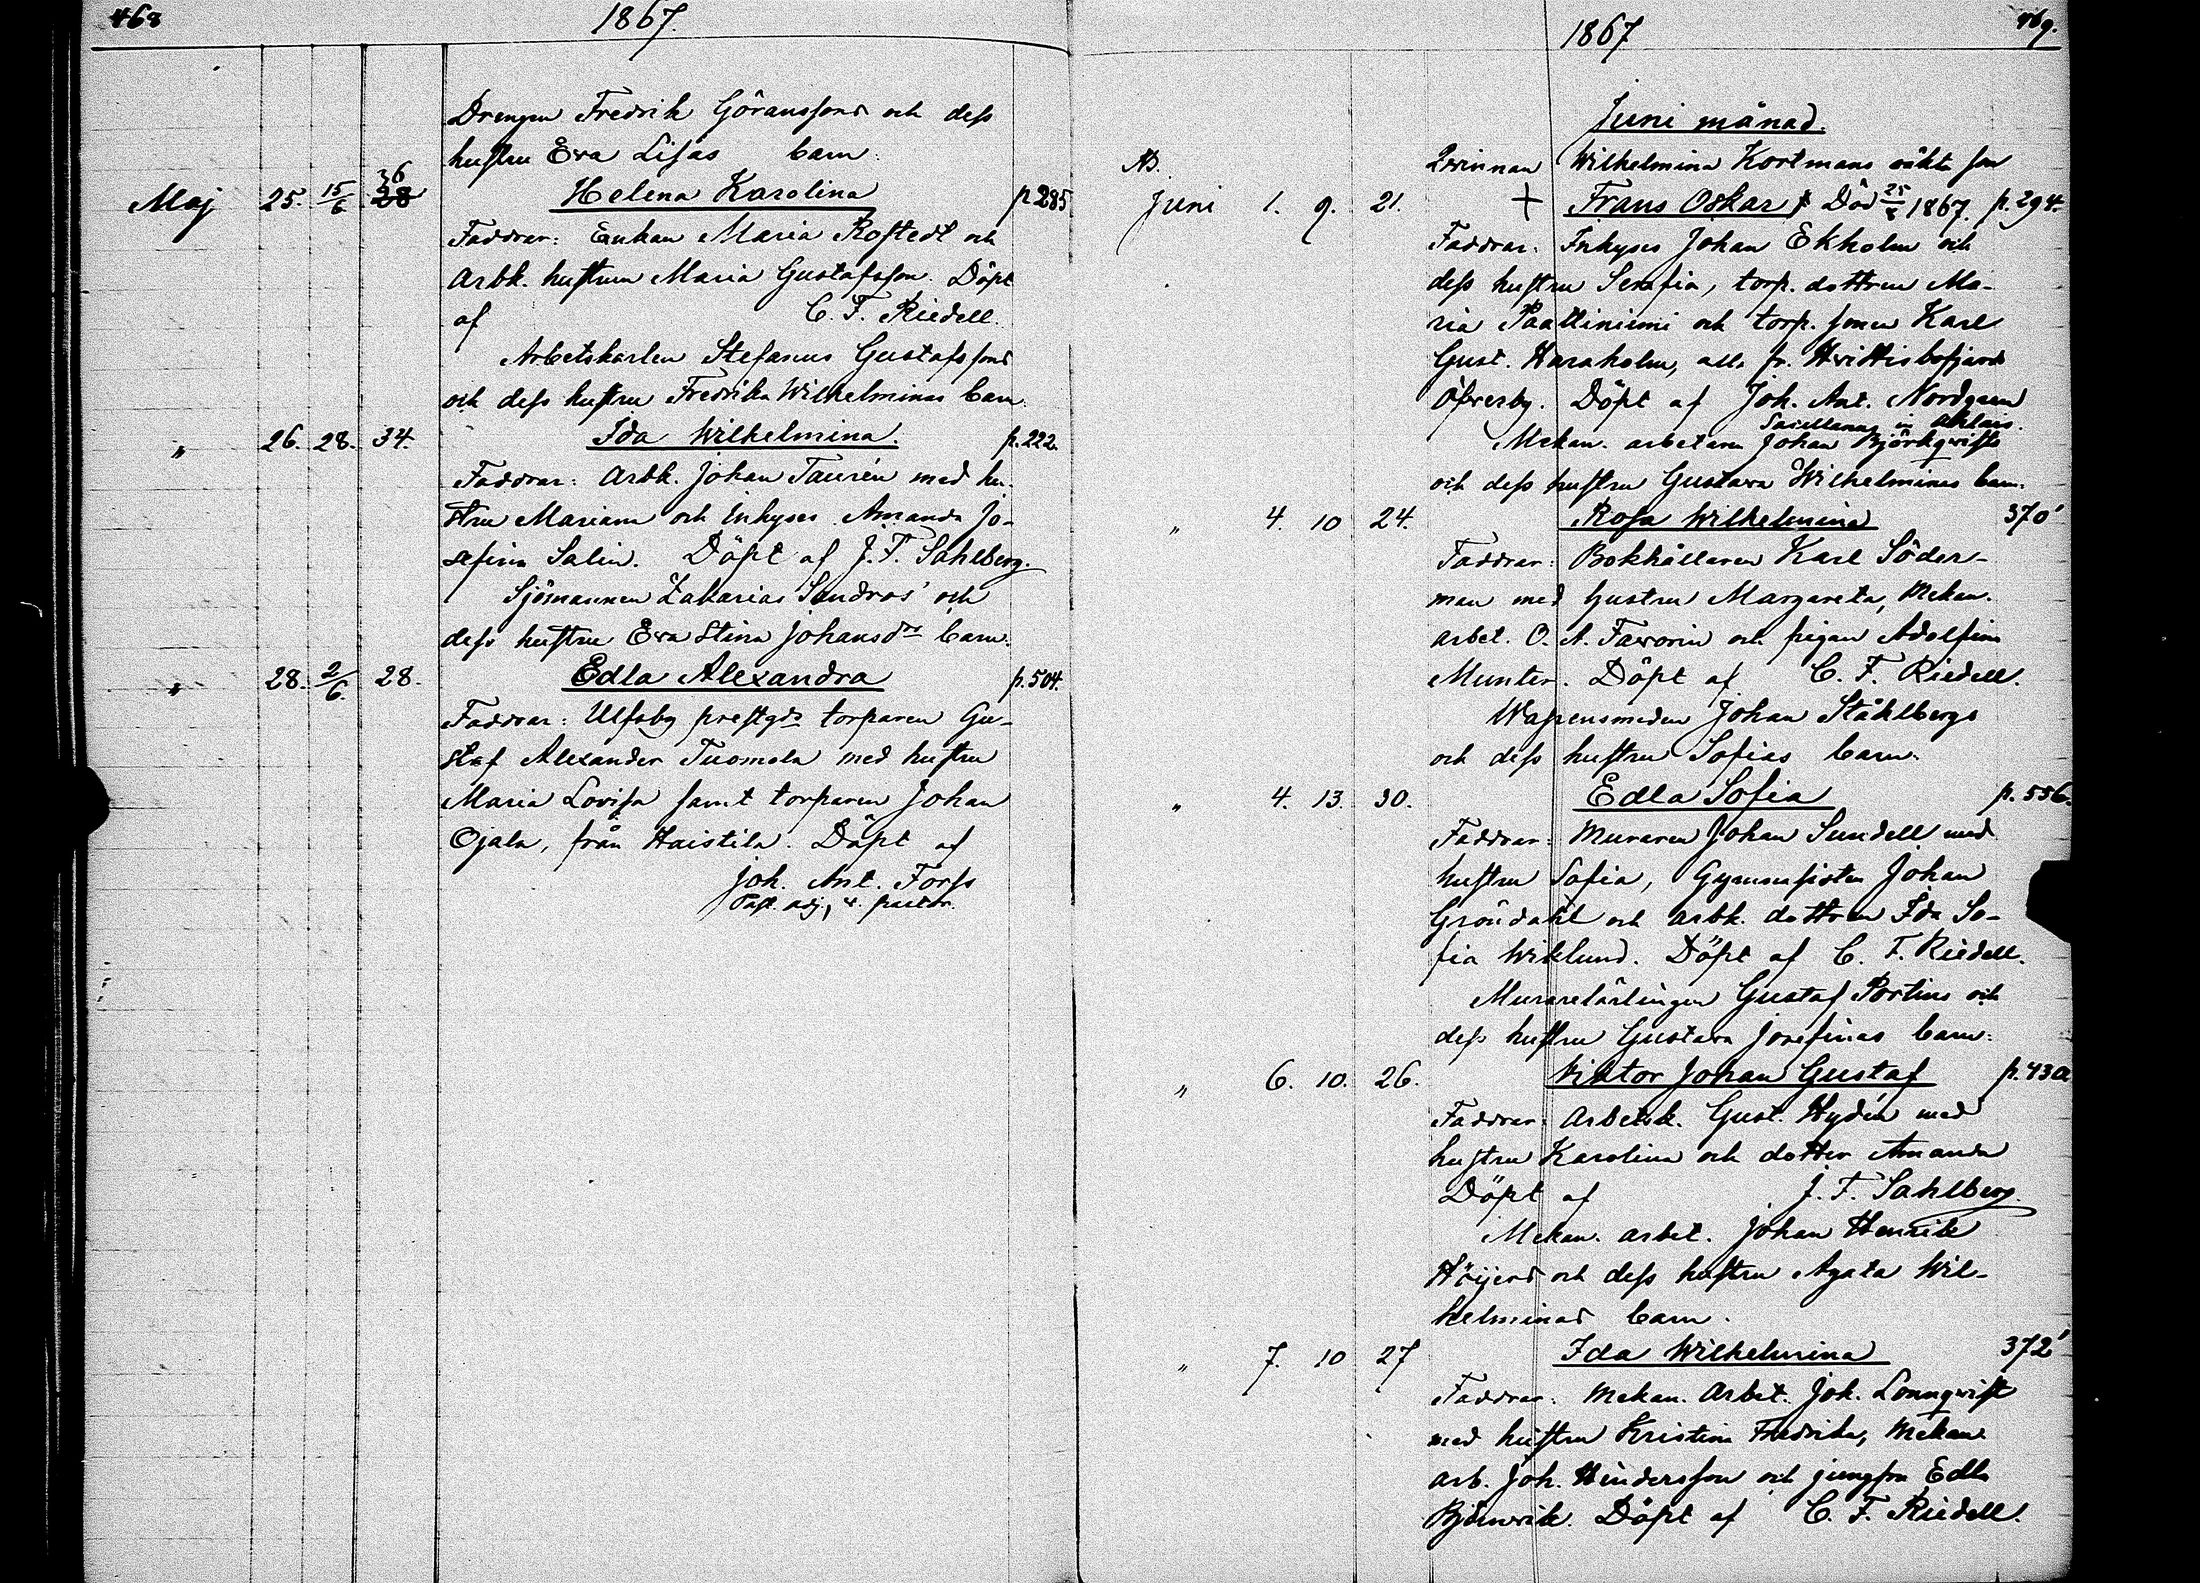 468
1867.
Drengen Fredrik Göranssons och dess
hustru Eva Lisas barn:
Maj 25. 15/6 36 28 Helena Karolina p 285
Faddrar: Enkan Maria Rostedt och
Arbk. hustrun Maria Gustafsson. Döpt
af C. F. Riedell.
Arbetskarlen Stefanus Gustafssons
och dess hustru Fredrika Wilhelminas barn:
" 26. 28. 34. Ida Wilhelmina. p. 222.
Faddrar: Arbk. Johan Taurén med hu-
stru Mariana och Inhyses Amanda Jo-
sefina Salin. Döpt af J. F. Sahlberg.
Sjömannen Zakarias Sandros' och
dess hustru Eva Stina Johansdrs barn:
" 28. 2/6. 28. Edla Alexandra p. 504.
Faddrar: Ulfsby prestgds torparen Gu-
staf Alexander Tuomola med hustru
Maria Lovisa samt torparen Johan
Ojala, från Haistila. Döpt af
Joh. Ant. Forss
Past. adj., v. pastor.
1867
469.
Juni månad.
Ao. Qvinnan Wilhelmina Kortmans oäkta son
Juni 1. 9. 21. + Frans Oskar Död 25/8 1867. p. 294.
Faddrar: Inhyses Johan Ekholm och
dess hustru Serafia, torp. dottren Ma-
ria Paattiniemi och torp. sonen Karl
Gust. Haraholm, alla fr. Hvittisbofjärd
Öfverby. Döpt af Joh. Ant. Nordgren
Sacellanus in Ahlais.
Mekan. arbetaren Johan Björkqvists
och dess hustru Gustava Wilhelminas barn:
" 4. 10 24. Rosa Wilhelmina 370'
Faddrar: Bokhållaren Karl Söder-
man med hustru Margareta, Mekan.
arbet. O. A. Favorin och pigan Adolfina
Munter. Döpt af C. F. Riedell.
Wapensmeden Johan Ståhlbergs
och dess hustru Sofias barn:
" 4. 13. 30. Edla Sofia p. 556.
Faddrar: Muraren Johan Sundell med
hustru Sofia, Gymnasisten Johan
Gröndahl och arbk. dottren Ida So-
fia Wiklund. Döpt af C. F. Riedell.
Murarelärlingen Gustaf Portins och
dess hustru Gustava Josefinas barn:
" 6. 10. 26. Viktor Johan Gustaf p. 43a
Faddrar: Arbetsk. Gust. Hydén med
hustru Karolina och dotter Amanda
Döpt af J. F. Sahlberg.
Mekan. arbet. Johan Henrik
Höijers och dess hustru Agata Wil-
helminas barn.
" 7. 10 27 Ida Wilhelmina 372'
Faddrar: Mekan. Arbet. Joh. Lönnqvist
med hustru Kristina Fredrika, Mekan.
arb. Joh. Hindersson och jungfru Edla
Döpt af C. F. Riedell.